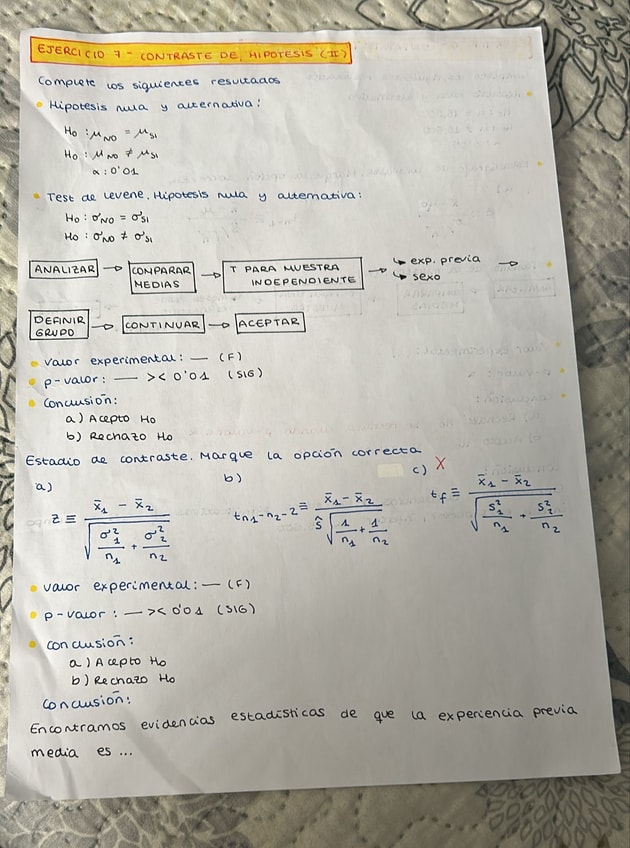 EJERCICIO 7 - CONTRASTE DE HIPOTESIS (II)
Complete los siguientes resultados
• Hipotesis nula y alternativa:
H₀ : μ_NO = μ_SI
H₀ : μ_NO ≠ μ_SI
α : 0'01
• Test de Levene. Hipotesis nula y alternativa:
H₀ : σ_NO = σ_SI
H₀ : σ_NO ≠ σ_SI
ANALIZAR → COMPARAR MEDIAS → T PARA MUESTRA INDEPENDIENTE → ↳ exp. previa →
↳ sexo
DEFINIR GRUPO → CONTINUAR → ACEPTAR
• valor experimental: — (F)
• p-valor: — >< 0'01 (SIG)
• Conclusión:
a) Acepto H₀
b) Rechazo H₀
Estadio de contraste. Marque la opción correcta
a) b) c) X
z ≡ (x̄₁ - x̄₂) / √(σ²₁/n₁ + σ²₂/n₂)
t_n₁-n₂-2 ≡ (x̄₁ - x̄₂) / ŝ √(1/n₁ + 1/n₂)
t_f ≡ (x̄₁ - x̄₂) / √(s²₁/n₁ + s²₂/n₂)
• valor experimental: — (F)
• p-valor : — >< 0'01 (SIG)
• conclusión:
a) Acepto H₀
b) Rechazo H₀
Conclusión:
Encontramos evidencias estadísticas de que la experiencia previa
media es ...